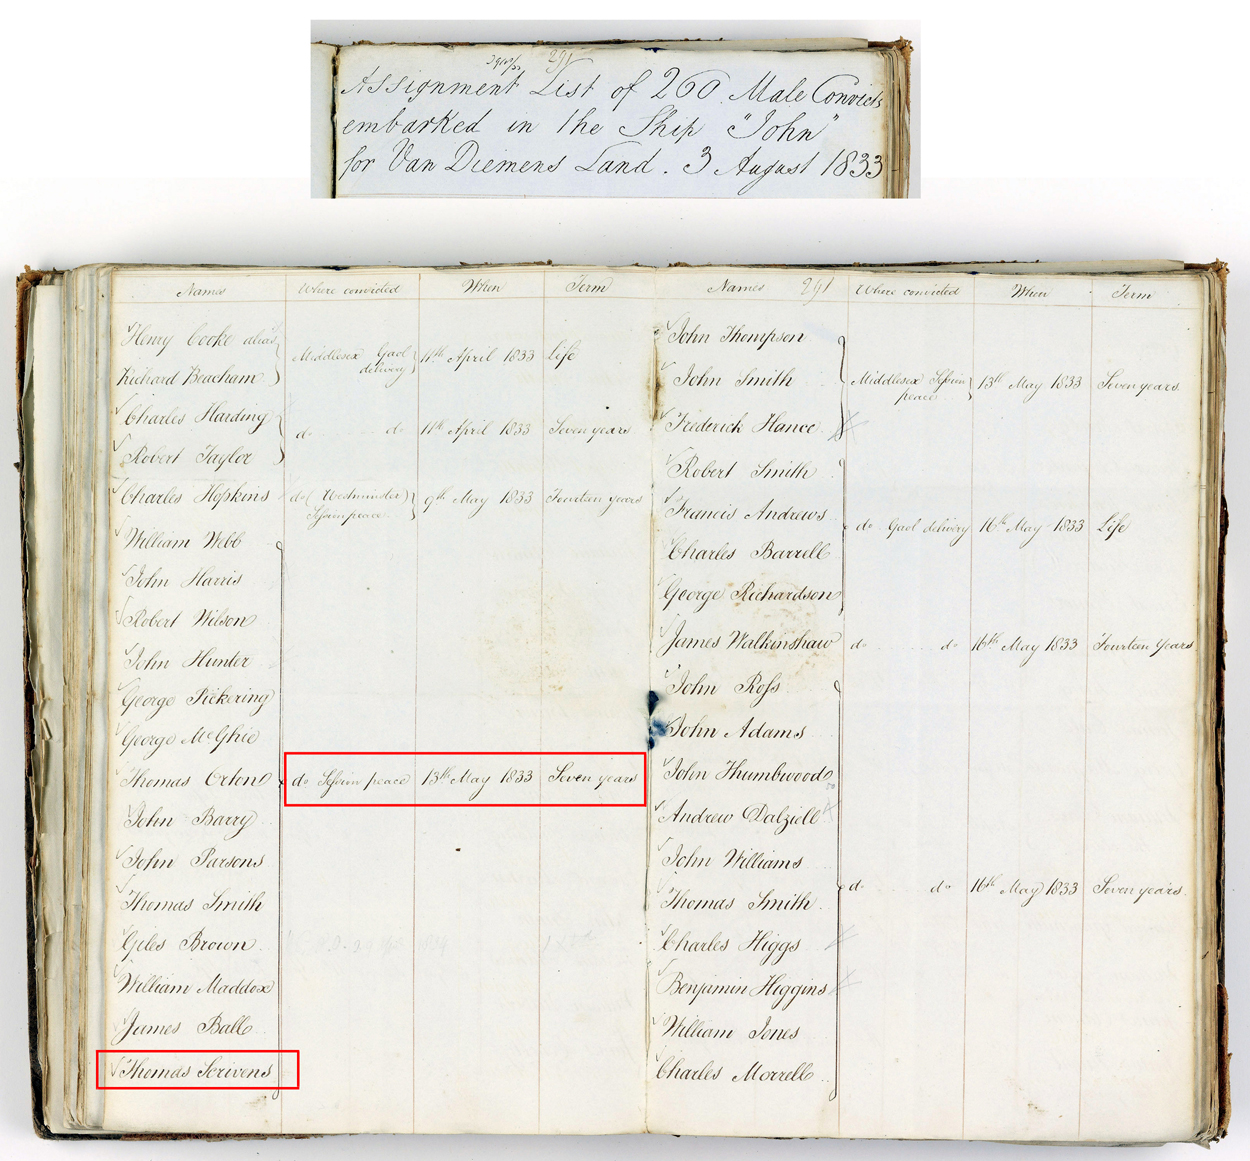 291
Assignment List of 260 Male Convicts
embarked in the Ship "John"
for Van Diemens Land. 3 August 1833
Names Where convicted When Term
Henry Cooke alias
Richard Beacham
Middlesex Gaol
delivery 11th April 1833 Life
Charles Harding
Robert Taylor
do do 11th April 1833 Seven years
Charles Hopkins do (Westminster)
Session peace 9th May 1833 Fourteen years
William Webb
John Harris
Robert Wilson
John Hunter
George Pickering
George McGhie
Thomas Orton do Session peace 13th May 1833 Seven years
John Barry
John Parsons
Thomas Smith
Giles Brown
William Maddox
James Ball
Thomas Scrivens
Names 291 Where convicted When Term
John Thompson
John Smith Middlesex Session
peace 13th May 1833 Seven years
Frederick Hance
Robert Smith
Francis Andrews do Gaol delivery 16th May 1833 Life
Charles Barrell
George Richardson
James Walkinshaw do do 16th May 1833 Fourteen Years
John Ross
John Adams
John Thumbwood
Andrew Dalziell
John Williams
Thomas Smith do do 16th May 1833 Seven years
Charles Higgs
Benjamin Higgins
William Jones
Charles Morrell